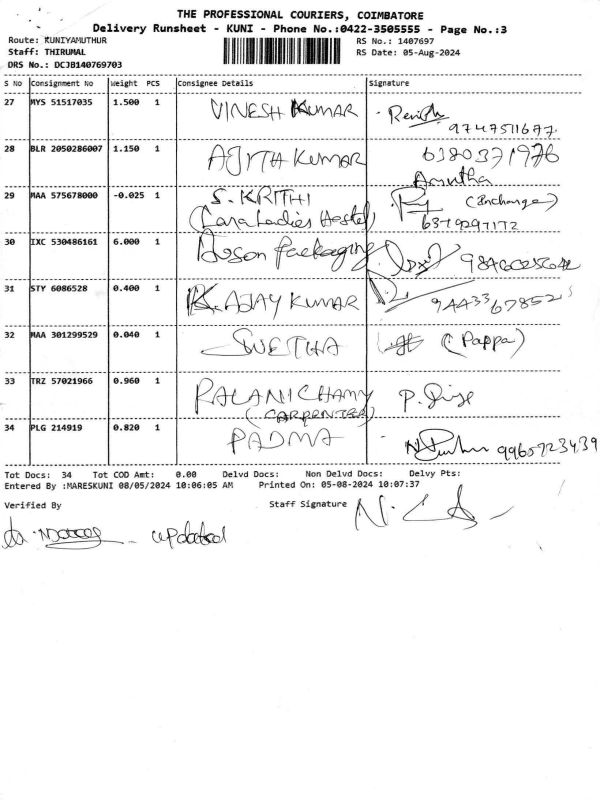 THE PROFESSIONAL COURIERS, COIMBATORE
Delivery Runsheet - KUNI - Phone No.:0422-3505555 - Page No.:3
Route: KUNIYAMUTHUR RS No.: 1407697
Staff: THIRUMAL RS Date: 05-Aug-2024
DRS No.: DCJB140769703
S No Consignment No Weight PCS Consignee Details Signature
27 MYS 51517035 1.500 1 VINESH KUMAR
9747511677
28 BLR 2050286007 1.150 1 AJITH KUMAR 6380371976
Amutha
29 MAA 575678000 -0.025 1 S. KRITHI (Incharge)
(Lara Ladies Hostel) 6379297172
30 IXC 530486161 6.000 1 Packaging
31 STY 6086528 0.400 1 K. AJAY KUMAR 9443367852
32 MAA 301299529 0.040 1 SWETHA (Pappa)
33 TRZ 57021966 0.960 1 PALANICHAMY P.
(CARPENTER)
34 PLG 214919 0.820 1 PADMA 9965923439
Tot Docs: 34 Tot COD Amt: 0.00 Delvd Docs: Non Delvd Docs: Delvy Pts:
Entered By :MARESKUNI 08/05/2024 10:06:05 AM Printed On: 05-08-2024 10:07:37
Verified By Staff Signature
updated